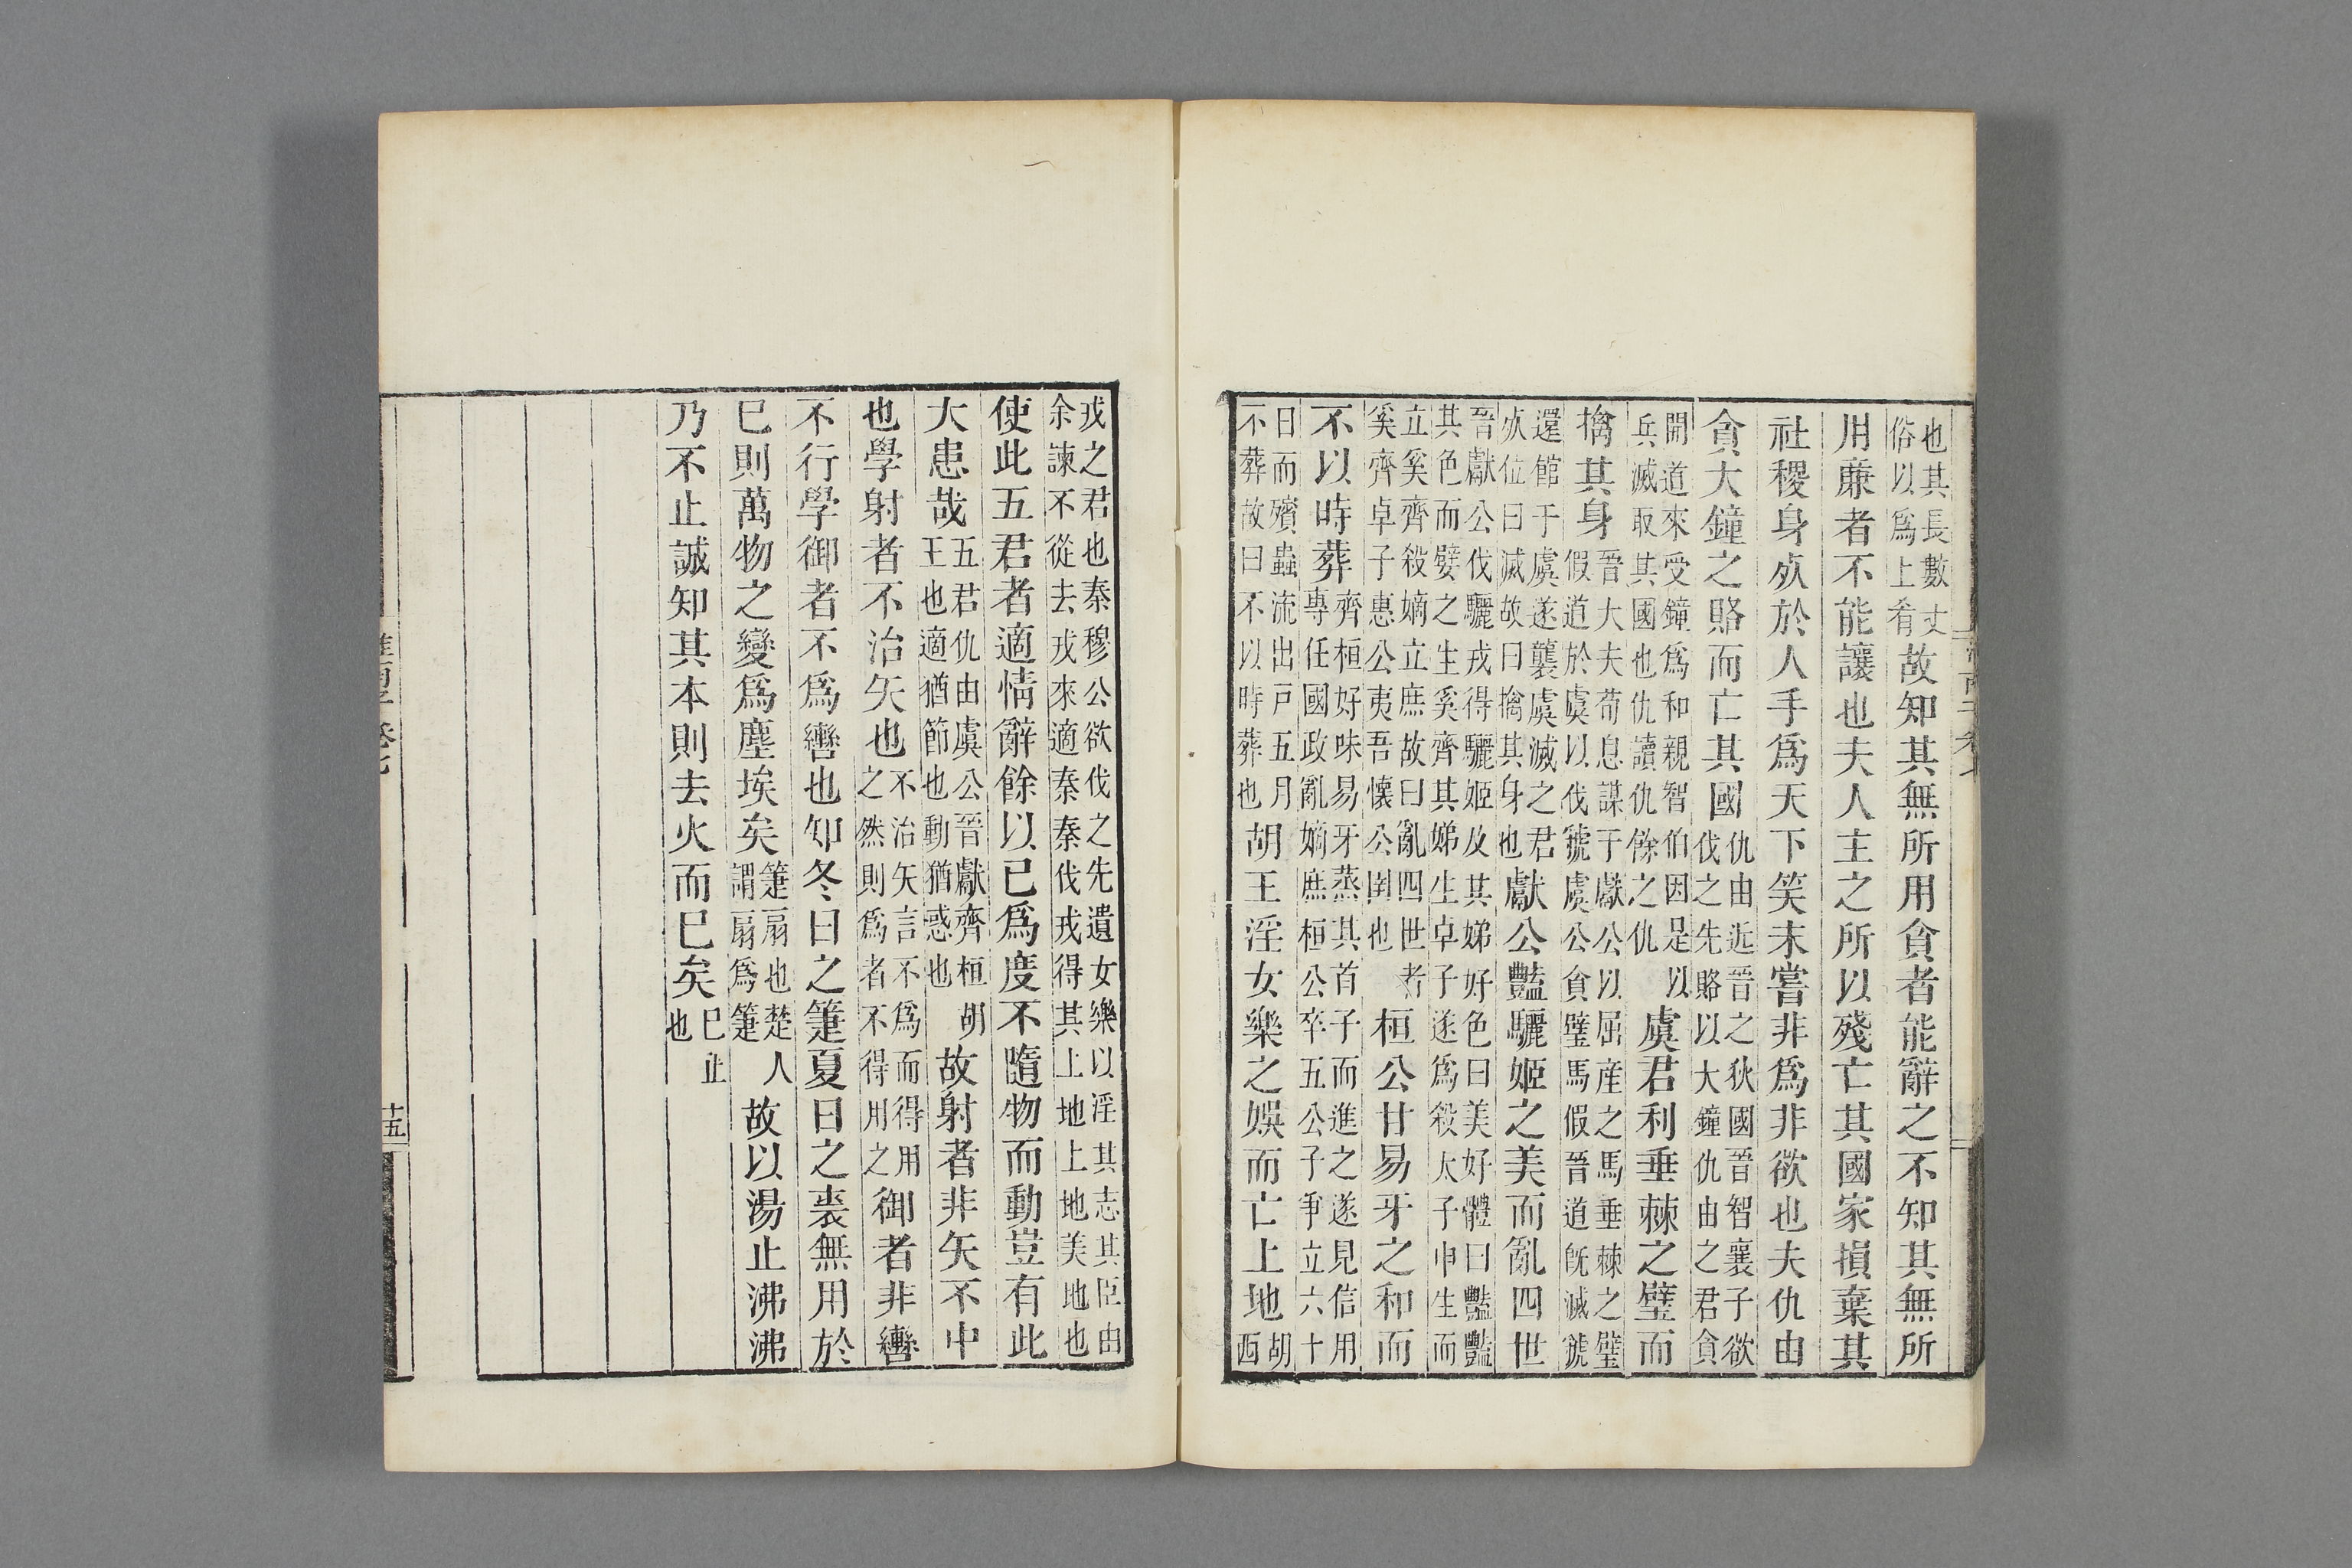 也其長數丈俗以爲上肴故知其無所用貪者能辭之不知其無所
用廉者不能讓也夫人主之所以殘亡其國家損棄其
社稷身死於人手爲天下笑未嘗非爲非欲也夫仇由
貪大鐘之賂而亡其國仇由近晉之狄國晉智襄子欲伐之先賂以大鐘仇由之君貪
開道來受鐘爲和親智伯因是以兵滅取其國也仇讀仇餘之仇虞君利垂棘之璧而
擒其身晉大夫荀息謀于獻公以屈產之馬垂棘之璧假道於虞以伐虢虞公貪璧馬假晉道旣滅虢
還館于虞遂襲虞滅之君死位曰滅故曰擒其身也獻公豔驪姬之美而亂四世
晉獻公伐驪戎得驪姬及其娣好色曰美好體曰豔豔其色而嬖之生奚齊其娣生卓子遂爲殺太子申生而
立奚齊殺嫡立庶故曰亂四世者奚齊卓子惠公夷吾懷公圉也桓公甘易牙之和而
不以時葬齊桓好味易牙蒸其首子而進之遂見信用專任國政亂嫡庶桓公卒五公子爭立六十
日而殯蟲流出戶五月不葬故曰不以時葬也胡王淫女樂之娛而亡上地胡西
戎之君也秦穆公欲伐之先遺女樂以淫其志其臣由余諫不從去戎來適秦秦伐戎得其上地上地美地也
使此五君者適情辭餘以己爲度不隨物而動豈有此
大患哉五君仇由虞公晉獻齊桓胡王也適猶節也動猶惑也故射者非矢不中
也學射者不治矢也不治矢言不爲而得用之然則爲者不得用之御者非轡
不行學御者不爲轡也知冬日之箑夏日之裘無用於
己則萬物之變爲塵埃矣箑扇也楚人謂扇爲箑故以湯止沸沸
乃不止誠知其本則去火而已矣已止也
淮南子卷七
十五